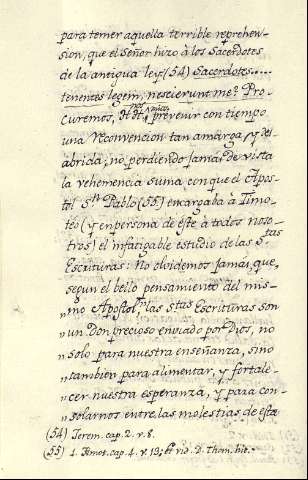 para temer aquella terrible reprehen-
sion, que el Señor hizo à los Sacerdotes
de la antigua ley (54) Sacerdotes.....
tenentes legem, nescierunt me. Pro-
curemos, prevenir con tiempo
una reconvencion tan amarga y des
abrida; no perdiendo jamas de vista
la vehemencia suma con que el Apos-
tol Sn Pablo (55) encargaba à Timo-
teo (y en persona de èste à todos noso-
tros) el infatigable estudio de las Stas
Escrituras: No olvidemos jamas, que,
segun el bello pensamiento del mis-
mo Apostol, "las Stas Escrituras son
"un Don precioso enviado por Dios, no
"solo para nuestra enseñanza, sino
"tambien para alimentar, y fortale-
"cer nuestra esperanza, y para con-
"solarnos entre las molestias de esta
(54) Jerem. cap. 2. v. 8.
(55) 1. Timot. cap. 4. v. 13; et vid. D. Thom. hic.